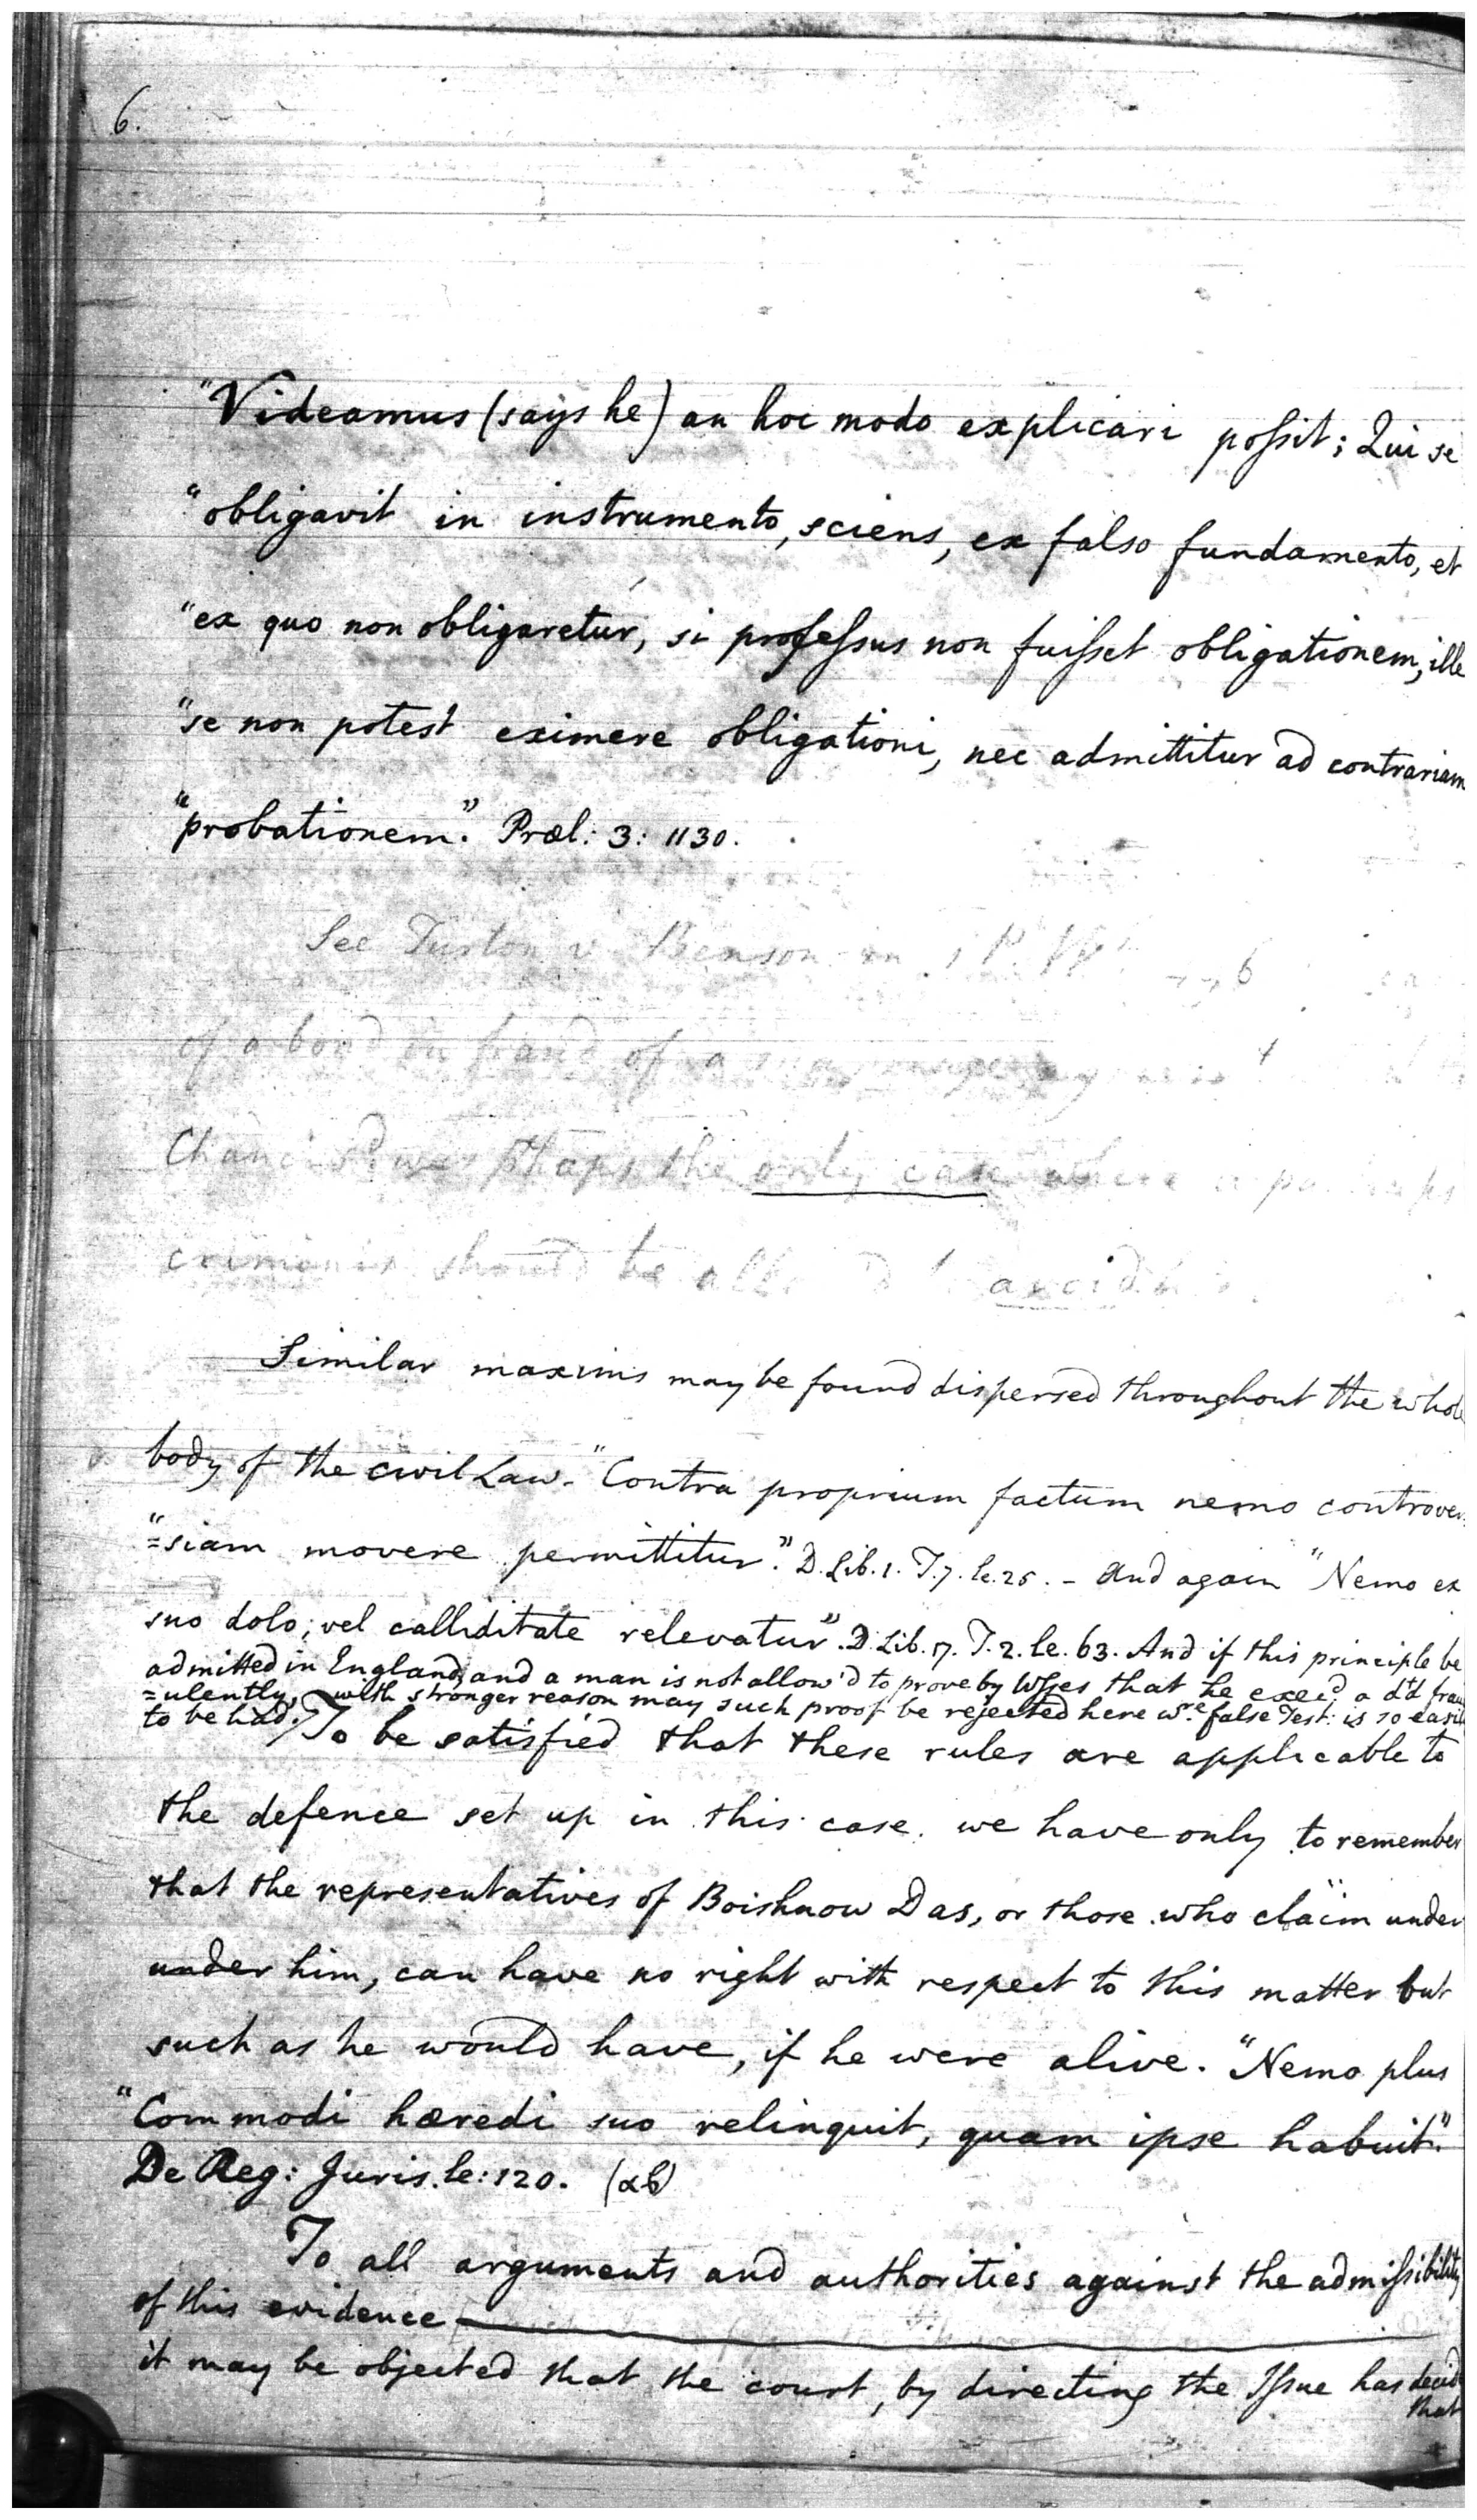 6.
"Videamus (says he) an hoc modo explicari poſsit; Qui se
"obligavit in instrumento, sciens, ex falso fundamento, et
"ex quo non obligaretur, si profeſsus non fuiſset obligationem, ille
"se non potest eximere obligationi, nec admittitur ad contrariam
"probationem." Præl: 3: 1130.
See Turton v Benson in 1 P. W
of a bond in fraud of a
Chanc was p'haps the only case where a
should be all
Similar maxims may be found dispersed throughout the whole
body of the civil Law. "Contra proprium factum nemo controver
"=siam movere permittitur." D. Lib. 1. T. 7. le. 25. - And again "Nemo ex
suo dolo, vel calliditate relevatur". D. Lib. 17. T. 2. le. 63. And if this principle be
admitted in England, and a man is not allow'd to prove by Wſſes that he exec'd a d'd frau
=ulently, with stronger reason may such proof be rejected here wre false Test: is so easily
to be had. To be satisfied that these rules are applicable to
the defence set up in this case. we have only to remember
that the representatives of Boishnow Das, or those who claim under
under him, can have no right with respect to this matter but
such as he would have, if he were alive. "Nemo plus
"Commodi hæredi suo relinquit, quam ipse habuit."
De Reg: Juris. le: 120. (&b)
To all arguments and authorities against the admiſsibility
of this evidence
it may be objected that the court, by directing the Iſsue has decid
that